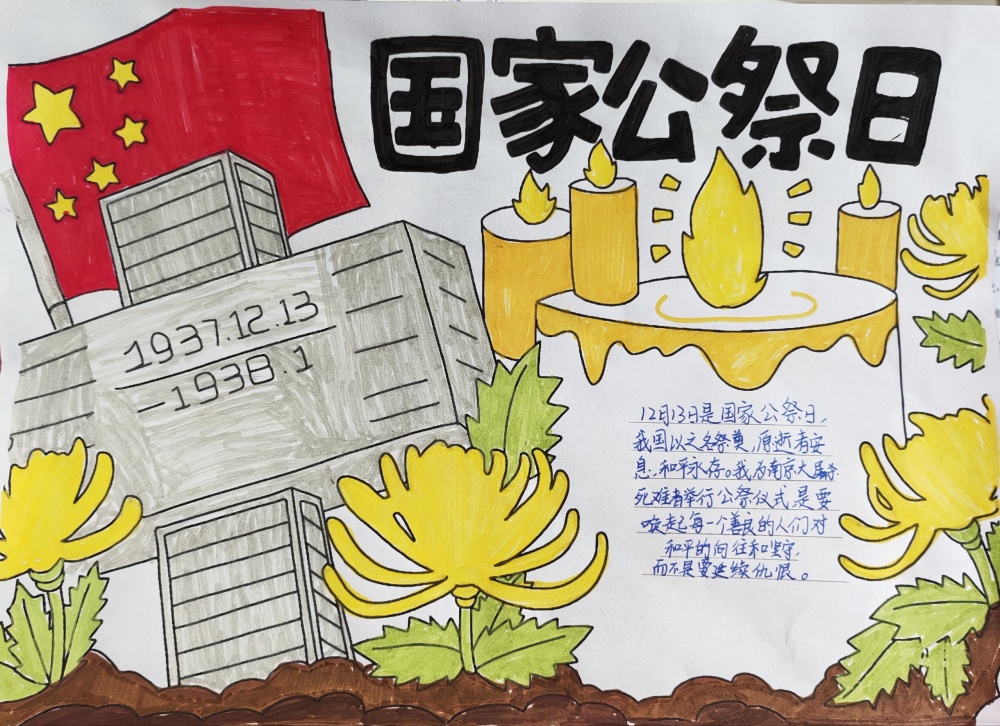 国家公祭日
1937.12.13
-1938.1
12月13日是国家公祭日,
我国以之名祭奠,愿逝者安
息,和平永存。我为南京大屠杀
死难者举行公祭仪式,是要
唤起每一个善良的人们对
和平的向往和坚守,
而不是要延续仇恨。